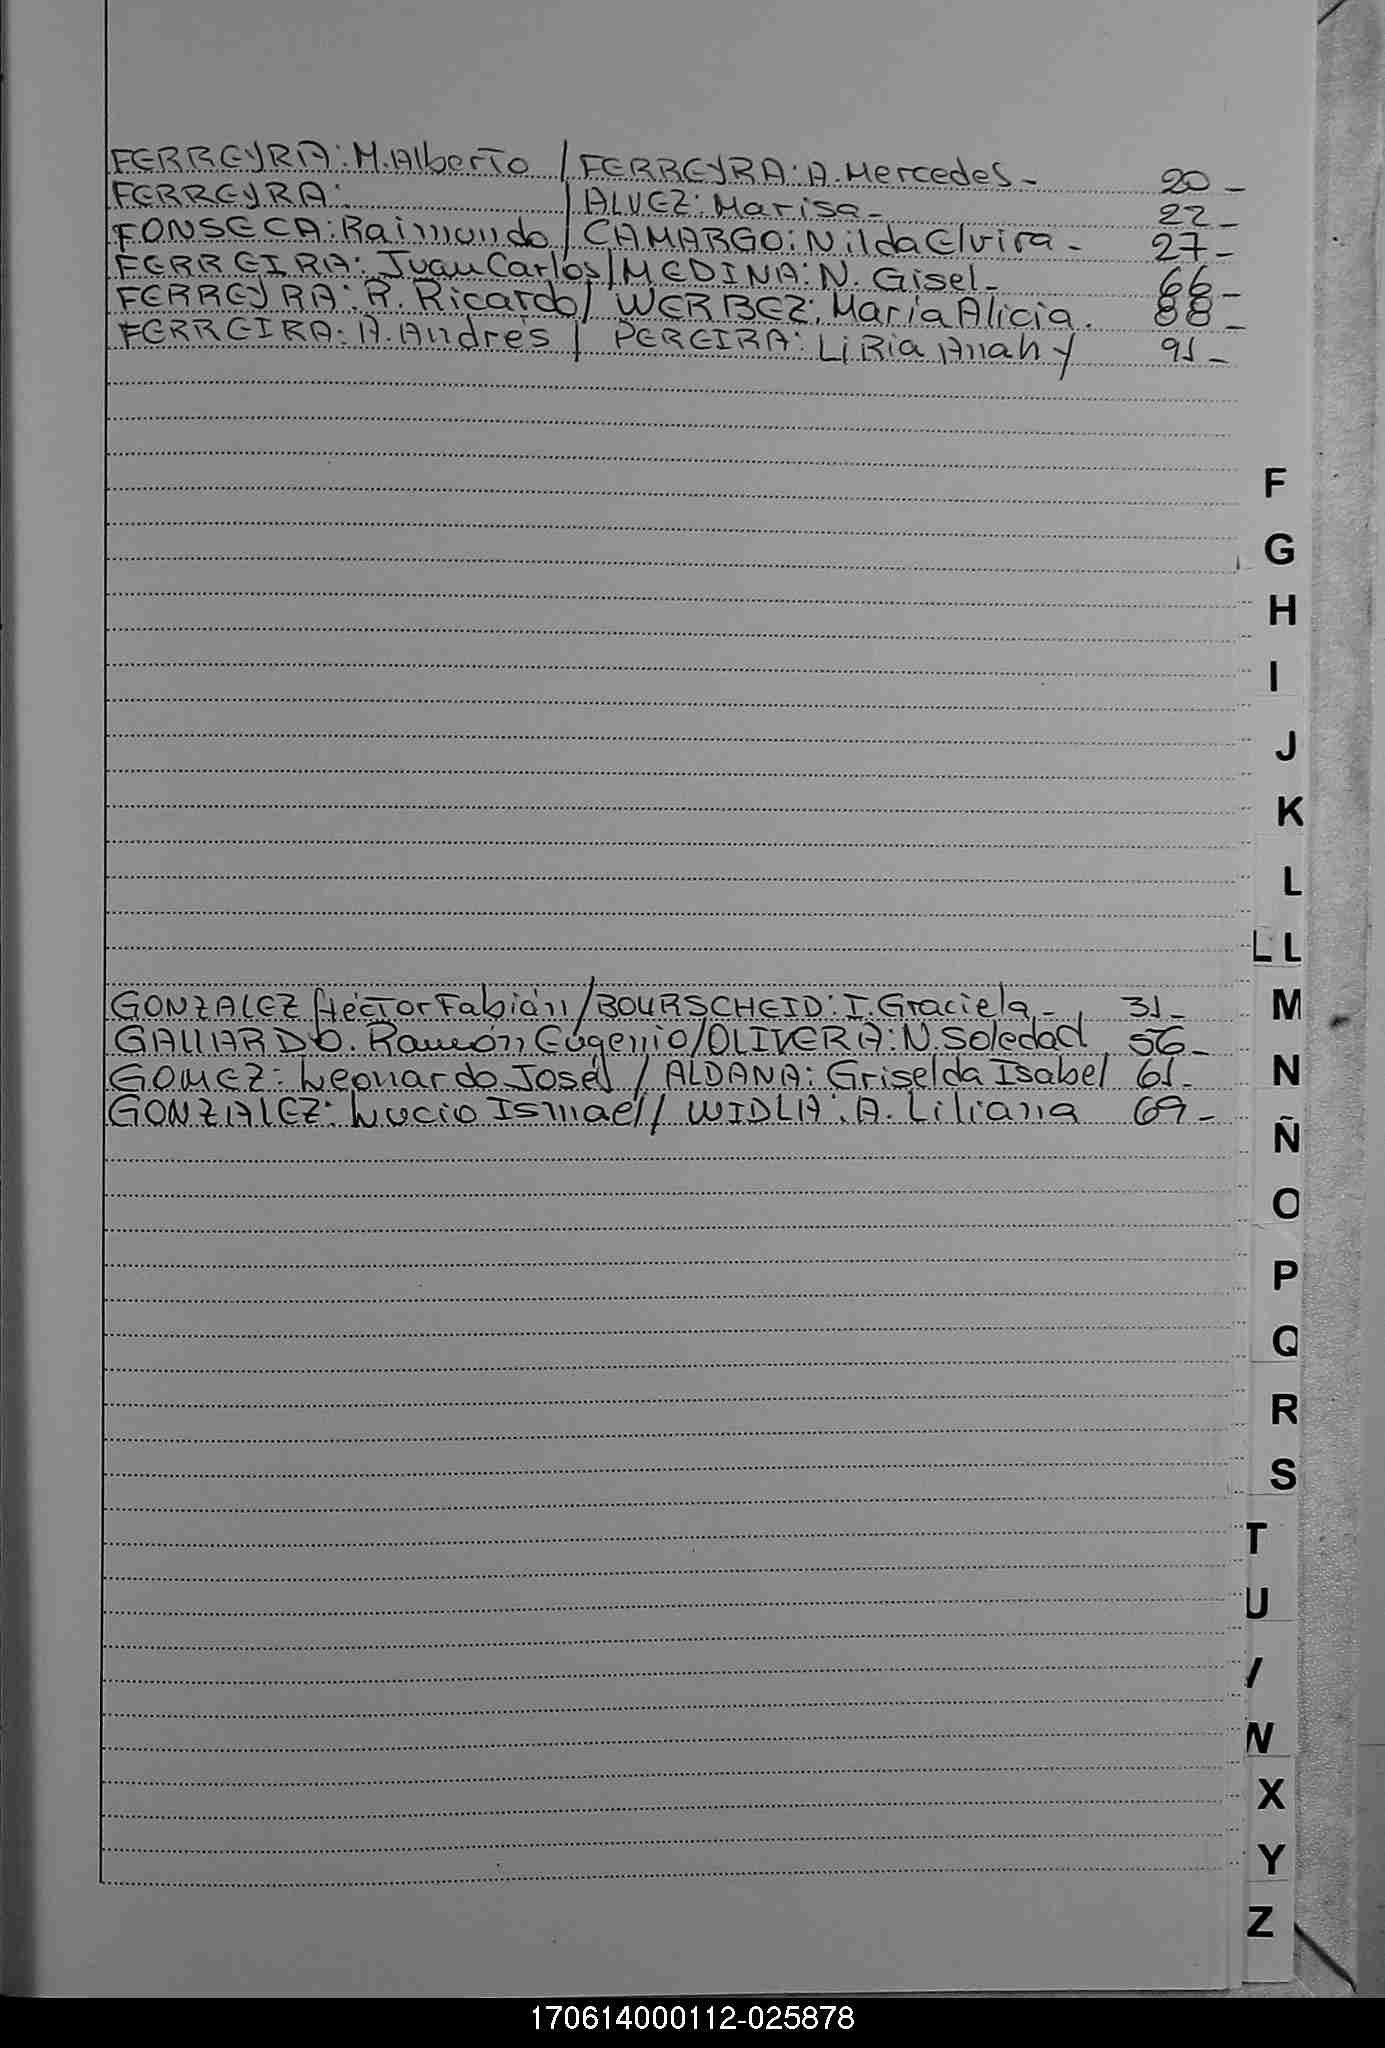 FERREYRA: M. Alberto / FERREYRA: A. Mercedes - 20 -
FERREYRA: / ALVEZ: Marisa - 22 -
FONSECA: Raimundo / CAMARGO: Nilda Elvira - 27 -
FERREIRA: Juan Carlos / MEDINA: N. Gisel - 66 -
FERREYRA: R. Ricardo / WERBEZ: María Alicia. 88 -
FERREIRA: A. Andrés / PEREIRA: LiRia Anahy 91 -
F
G
H
I
J
K
L
LL
GONZALEZ Héctor Fabián / BOURSCHEID: I. Graciela - 31 -
M
GALLARDO. Ramón Eugenio / OLIVERA: N. Soledad 56 -
GOMEZ: Leonardo José / ALDANA: Griselda Isabel 61 -
N
GONZALEZ: Lucio Ismael / WIDLIA: A. Liliana 69 -
Ñ
O
P
Q
R
S
T
U
V
W
X
Y
Z
170614000112-025878